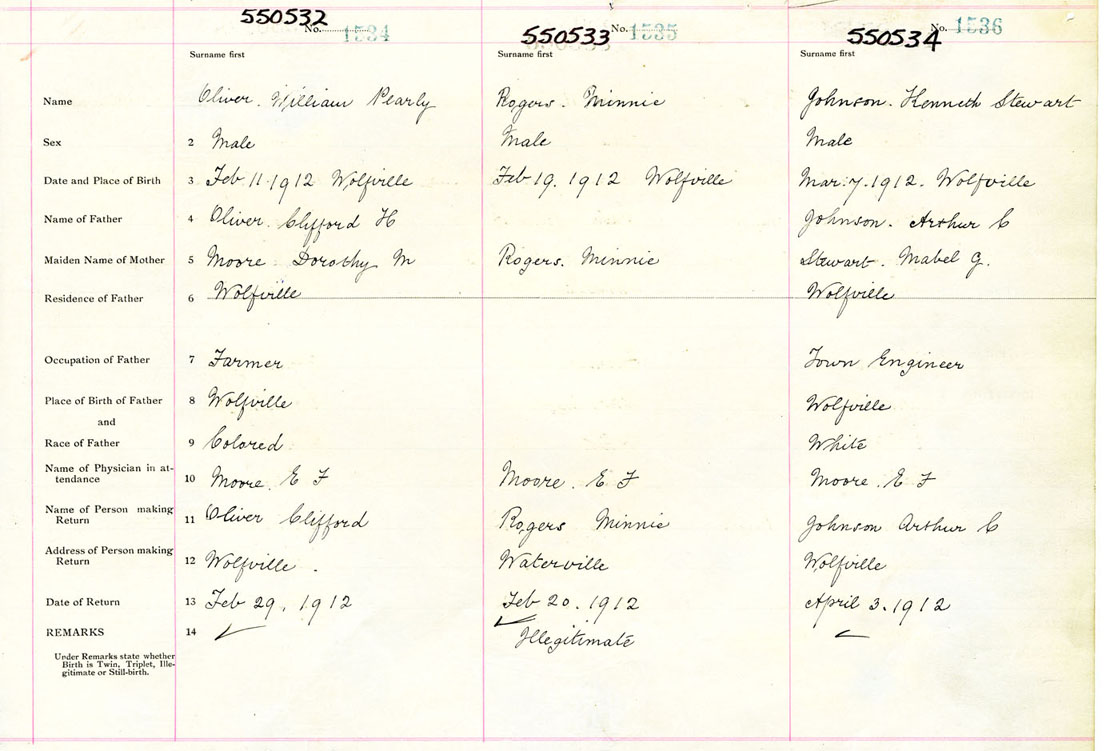 550532 No. 1534 550533 No. 1535 550534 No. 1536
Surname first Surname first Surname first
Name Oliver. William Pearly Rogers. Minnie Johnson. Kenneth Stewart
Sex 2 Male Male Male
Date and Place of Birth 3 Feb 11. 1912 Wolfville Feb 19. 1912 Wolfville Mar. 7. 1912. Wolfville
Name of Father 4 Oliver. Clifford H Johnson. Arthur C
Maiden Name of Mother 5 Moore Dorothy M Rogers. Minnie Stewart. Mabel G.
Residence of Father 6 Wolfville Wolfville
Occupation of Father 7 Farmer Town Engineer
Place of Birth of Father 8 Wolfville Wolfville
and
Race of Father 9 Colored White
Name of Physician in at-
tendance 10 Moore. E F Moore. E F Moore. E F
Name of Person making
Return 11 Oliver Clifford Rogers Minnie Johnson Arthur C
Address of Person making
Return 12 Wolfville. Waterville Wolfville
Date of Return 13 Feb 29. 1912 Feb 20. 1912 April 3. 1912
REMARKS 14 ✓ ✓ Illegitimate ✓
Under Remarks state whether
Birth is Twin, Triplet, Ille-
gitimate or Still-birth.